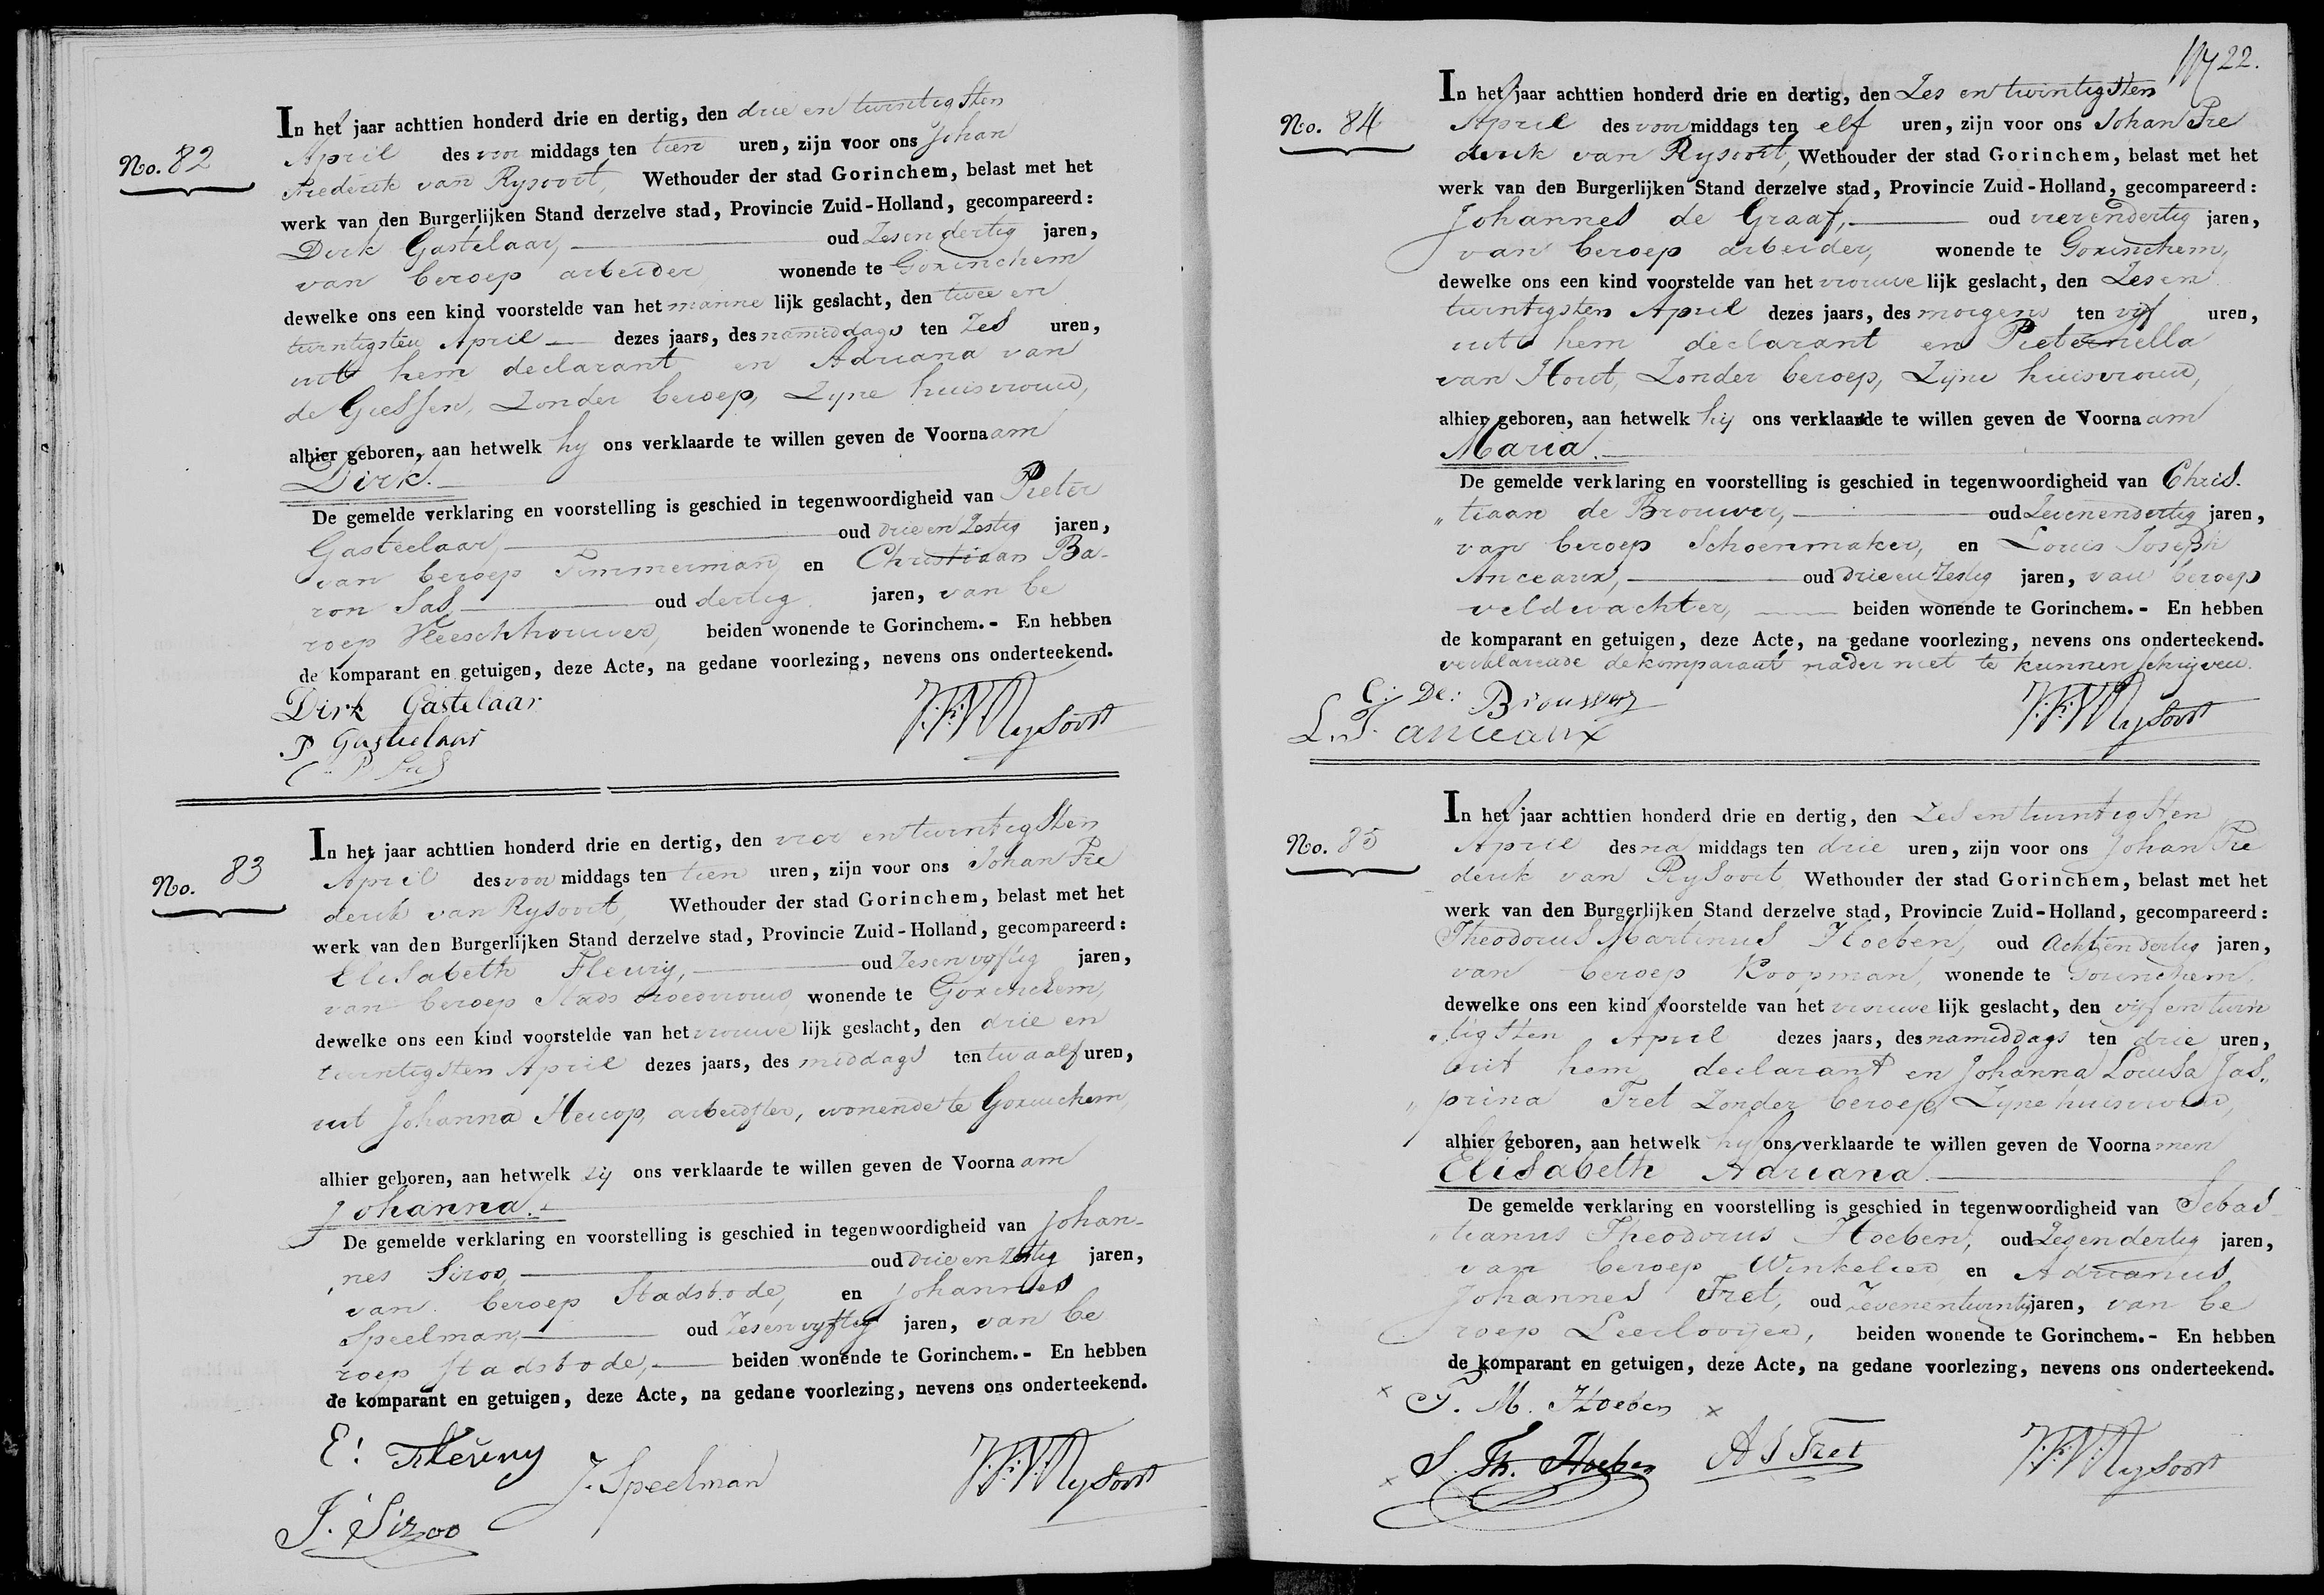 No. 82
In het jaar achttien honderd drie en dertig, den drie en twintigsten
April des voor middags ten tien uren, zijn voor ons Johan
Frederik van Rysoort, Wethouder der stad Gorinchem, belast met het
werk van den Burgerlijken Stand derzelve stad, Provincie Zuid-Holland, gecompareerd:
Dirk Gastelaar, oud Zesendertig jaren,
van beroep arbeider, wonende te Gorinchem
dewelke ons een kind voorstelde van het manne lijk geslacht, den twee en
twintigsten April dezes jaars, des namiddags ten Zes uren,
uit hem declarant en Adriana van
de Giessen, Zonder beroep, Zyne huisvrouw,
alhier geboren, aan hetwelk hy ons verklaarde te willen geven de Voornaam
Dirk.
De gemelde verklaring en voorstelling is geschied in tegenwoordigheid van Pieter
Gasteelaar, oud drie en Zestig jaren,
van beroep Timmerman, en Christiaan Ba-
ron Sas, oud dertig jaren, van be
roep Vleeschhouwer, beiden wonende te Gorinchem.- En hebben
de komparant en getuigen, deze Acte, na gedane voorlezing, nevens ons onderteekend.
Dirk Gastelaar
P Gastelaar
J.F.V. Rysoort
No. 83
In het jaar achttien honderd drie en dertig, den vier en twintigsten
April des voor middags ten tien uren, zijn voor ons Johan Fre
derik van Rysoort, Wethouder der stad Gorinchem, belast met het
werk van den Burgerlijken Stand derzelve stad, Provincie Zuid-Holland, gecompareerd:
Elisabeth Fleury, oud Zesenvyftig jaren,
van beroep Stads vroedvrouw wonende te Gorinchem,
dewelke ons een kind voorstelde van het vrouwe lijk geslacht, den drie en
twintigsten April dezes jaars, des middags ten twaalf uren,
uit Johanna Heicop, arbeidster, wonende te Gorinchem,
alhier geboren, aan hetwelk zij ons verklaarde te willen geven de Voornaam
Johanna.
De gemelde verklaring en voorstelling is geschied in tegenwoordigheid van Johan-
nes Siroo, oud drie en Zestig jaren,
van beroep Stadsbode, en Johannes
Speelman, oud Zesenvyftig jaren, van be
roep stadsbode, beiden wonende te Gorinchem.- En hebben
de komparant en getuigen, deze Acte, na gedane voorlezing, nevens ons onderteekend.
E: Fleury
J. Speelman
J.F.V. Rysoort
J. Sizoo
22.
No. 84
In het jaar achttien honderd drie en dertig, den Zes en twintigsten
April des voor middags ten elf uren, zijn voor ons Johan Fre
derik van Rysoort, Wethouder der stad Gorinchem, belast met het
werk van den Burgerlijken Stand derzelve stad, Provincie Zuid-Holland, gecompareerd:
Johannes de Graaf, oud vierendertig jaren,
van beroep arbeider, wonende te Gorinchem,
dewelke ons een kind voorstelde van het vrouwe lijk geslacht, den Zes en
twintigsten April dezes jaars, des morgens ten vijf uren,
uit hem declarant en Pieternella
van Hout, Zonder beroep, Zijne huisvrouw,
alhier geboren, aan hetwelk hij ons verklaarde te willen geven de Voornaam
Maria.
De gemelde verklaring en voorstelling is geschied in tegenwoordigheid van Chris-
„ tiaan de Brouwer, oud Zevenendertig jaren,
van beroep Schoenmaker, en Louis Joseph
Anceaux, oud drie en Zestig jaren, van beroep
veldwachter, beiden wonende te Gorinchem.- En hebben
de komparant en getuigen, deze Acte, na gedane voorlezing, nevens ons onderteekend.
verklarende de komparant nader niet te kunnen schrijven.
C: De: Brouwer
L. J. anceaux
J.F.V. Rysoort
No. 85
In het jaar achttien honderd drie en dertig, den Zes en twintigsten
April des na middags ten drie uren, zijn voor ons Johan Fre
derik van Rysoort Wethouder der stad Gorinchem, belast met het
werk van den Burgerlijken Stand derzelve stad, Provincie Zuid-Holland, gecompareerd:
Theodorus Martinus Hoeben, oud Achtendertig jaren,
van beroep Koopman, wonende te Gorinchem,
dewelke ons een kind voorstelde van het vrouwe lijk geslacht, den vijf en twin
„ tigsten April dezes jaars, des namiddags ten drie uren,
uit hem declarant en Johanna Louisa Jas„
„ prina Tret Zonder beroep, Zyne huisvrouw,
alhier geboren, aan hetwelk hy ons verklaarde te willen geven de Voornamen
Elisabeth Adriana.
De gemelde verklaring en voorstelling is geschied in tegenwoordigheid van Sebas
„ tianus Theodorus Hoeben, oud Zesendertig jaren,
van beroep Winkelier en Adrianus
Johannes Tret, oud Zevenentwintig jaren, van be
roep Leerlooijer, beiden wonende te Gorinchem.- En hebben
de komparant en getuigen, deze Acte, na gedane voorlezing, nevens ons onderteekend.
T. M. Hoeben
S. Th. Hoeben
A J Tret
J.F.V. Rysoort